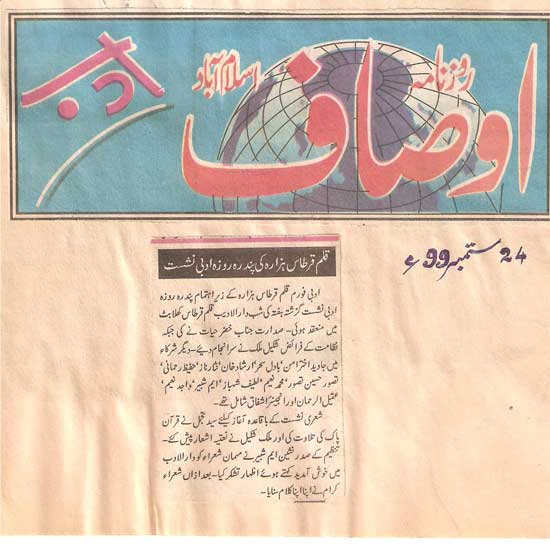 روزنامہ
اوصاف
اسلام آباد
ادب
24 ستمبر 99ء
قلم قرطاس ہزارہ کی پندرہ روزہ ادبی نشست
ادبی فورم قلم قرطاس ہزارہ کے زیر اہتمام پندرہ روزہ
ادبی نشست گزشتہ ہفتہ کی شب دارالادیب قلم قرطاس کھلابٹ
میں منعقد ہوئی۔ صدارت جناب خضر حیات نے کی جبکہ
نظامت کے فرائض شکیل ملک نے سرانجام دیئے۔ دیگر شرکاء
میں جاوید اختر امن، بادل سحر، ارشاد خان، نثار ناز، حفیظ رحمانی،
تصور حسین تصور، محمد نعیم، لطیف شہباز، ایم شبیر، واجد نعیم،
عقیل الرحمان اور انجینئر اشفاق شامل تھے۔
شعری نشست کے باقاعدہ آغاز کیلئے سید تجمل نے قرآن
پاک کی تلاوت کی اور ملک شکیل نے نعتیہ اشعار پیش کئے۔
تنظیم کے صدر نشین ایم شبیر نے مہمان شعراء کو دارالادب
میں خوش آمدید کہتے ہوئے اظہار تشکر کیا۔ بعد ازاں شعراء
کرام نے اپنا اپنا کلام سنایا۔